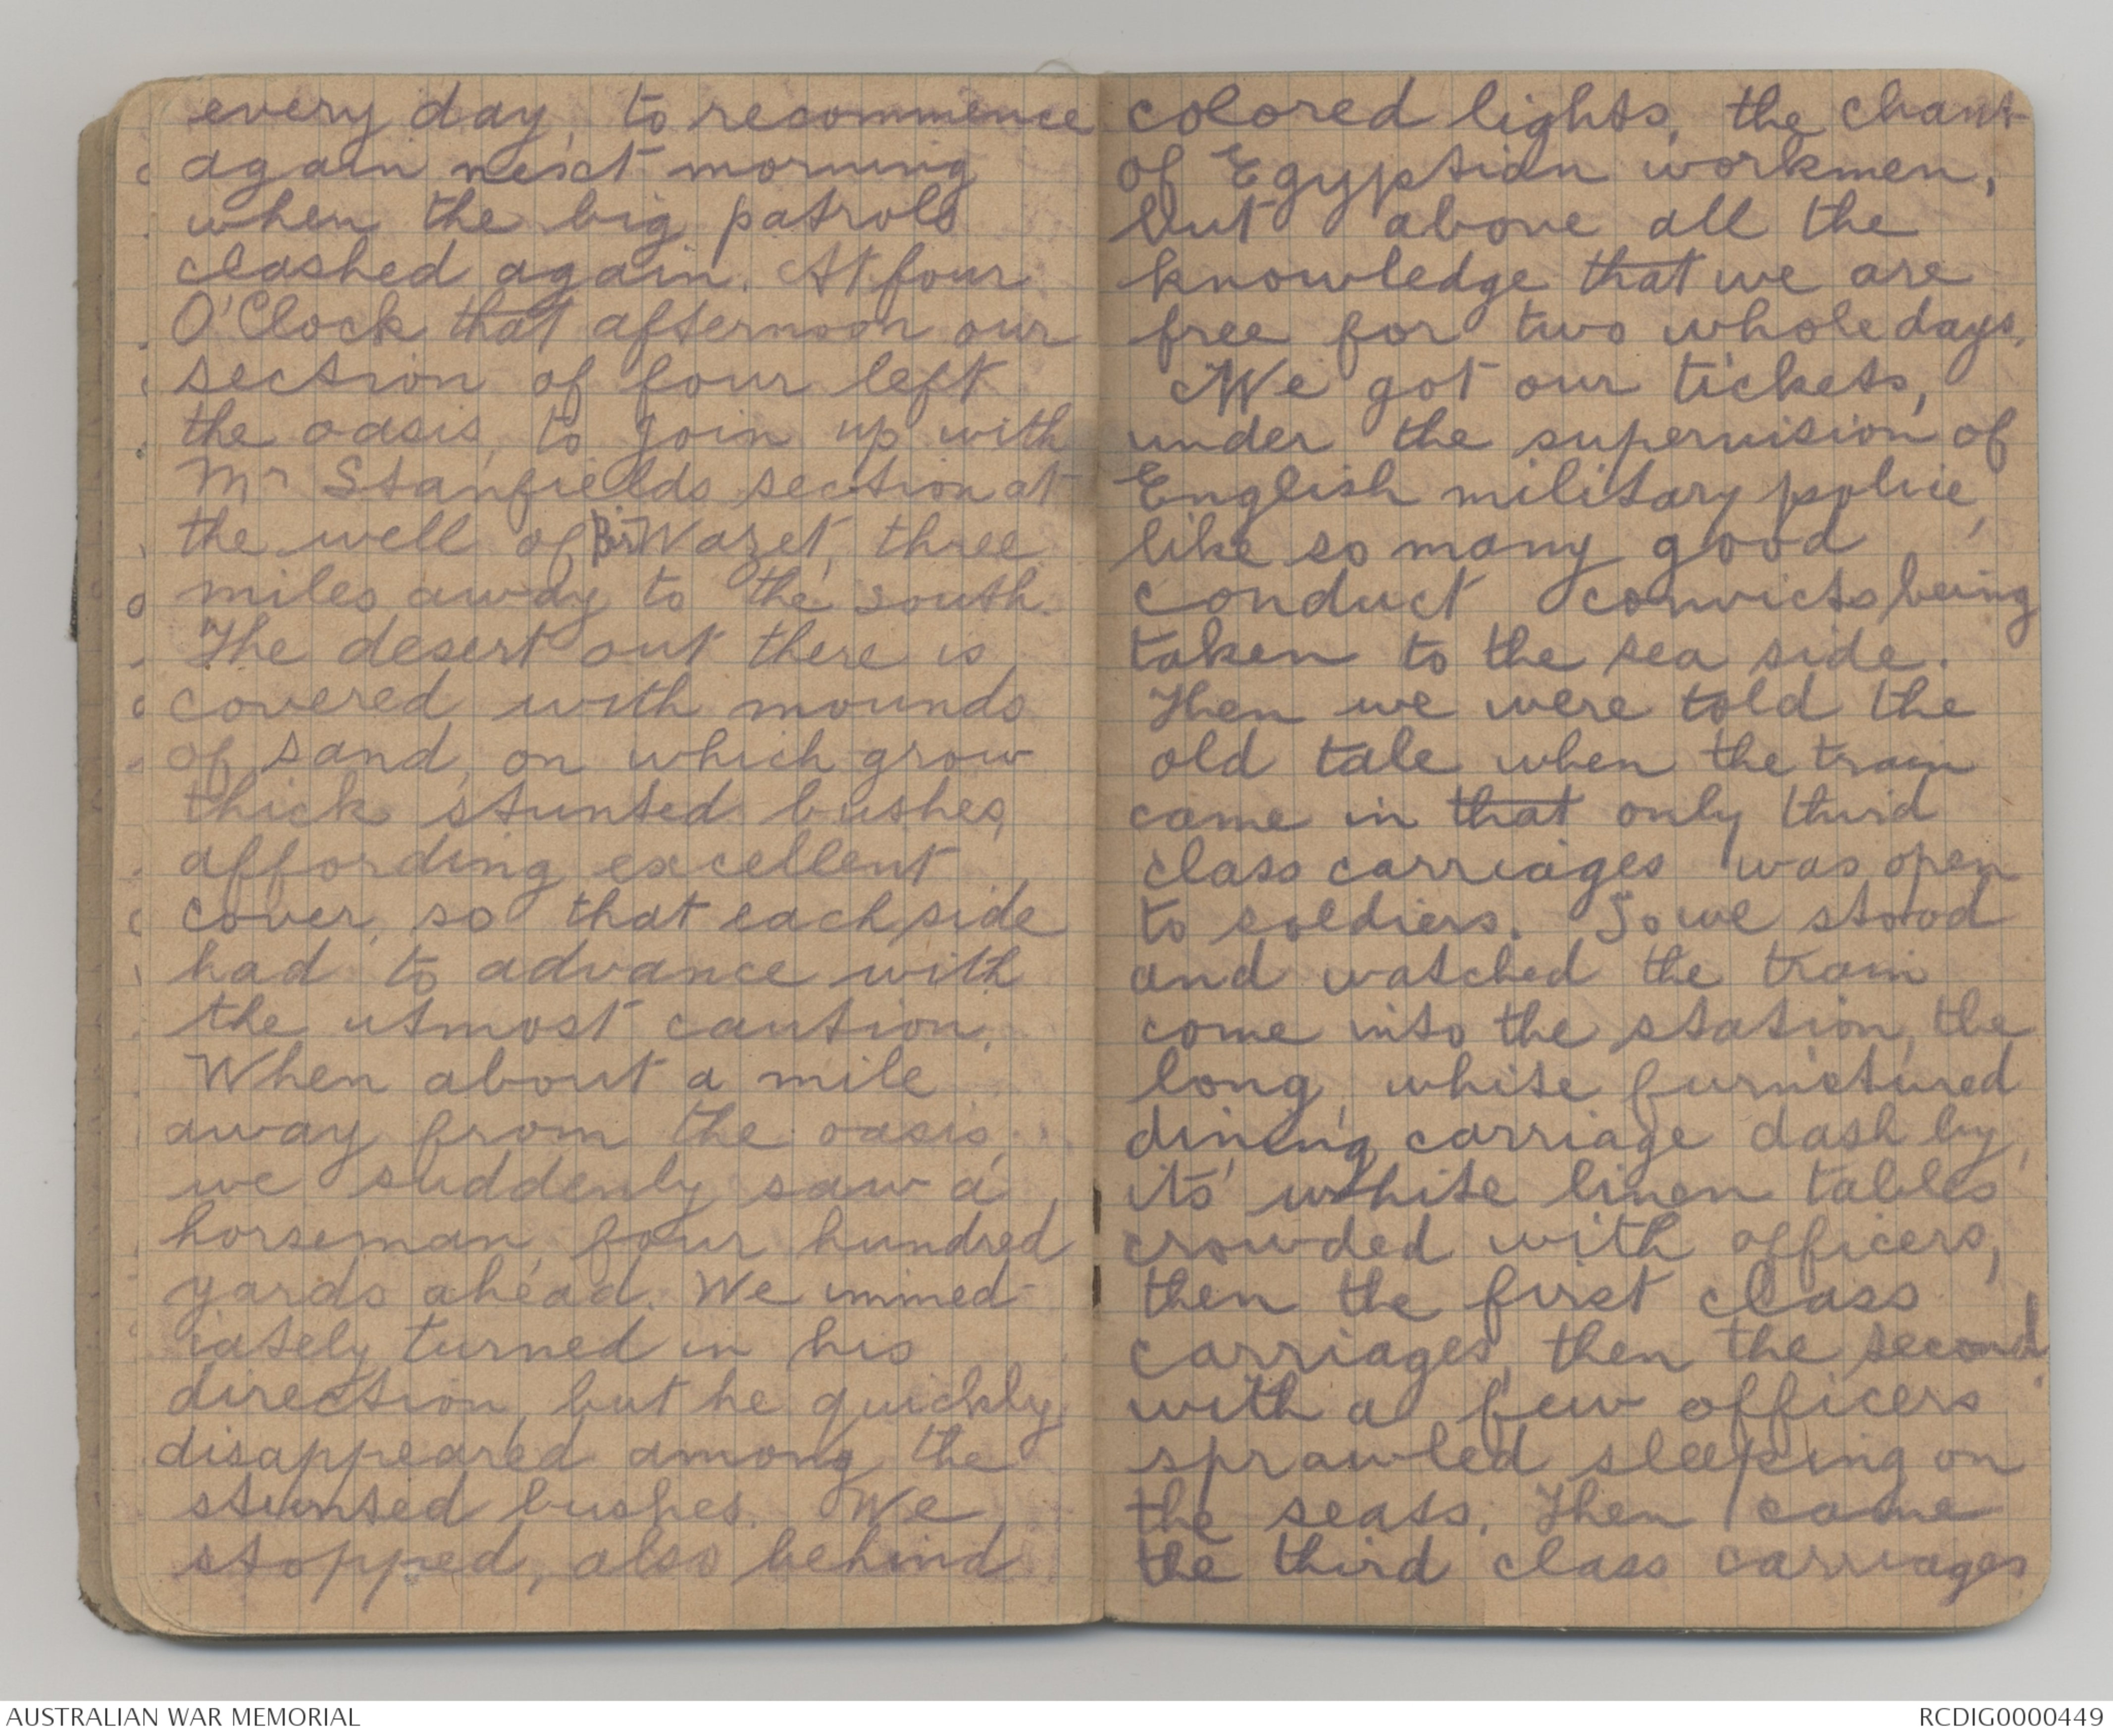 every day, to recommence
again next morning
when the big patrols
clashed again. At four
O'Clock that afternoon our
section of four left
the oasis, to join up with
Mr Stanfields section at
the well of Bir Wazet, three
miles away to the south.
The desert out there is
covered with mounds
of sand, on which grow
thick stunted bushes,
affording excellent
cover, so that each side
had to advance with
the utmost caution.
When about a mile
away from the oasis,
we suddenly saw a
horseman, four hundred
yards ahead. We immed-
iately turned in his
direction, but he quickly
disappeared among the
stunted bushes. We
stopped, also behind
colored lights, the chant
of Egyptian workmen,
but above all the
knowledge that we are
free for two whole days.
We got our tickets,
under the supervision of
English military police,
like so many good
conduct convicts being
taken to the sea side.
Then we were told the
old tale when the train
came in that only third
class carriages was open
to soldiers. So we stood
and watched the train
come into the station, the
long, white furnitured
dining carriage dash by,
its white linen tables
crowded with officers,
then the first class
carriages, then the second
with a few officers
sprawled sleeping on
the seats. Then came
the third class carriages
AUSTRALIAN WAR MEMORIAL
RCDIG0000449